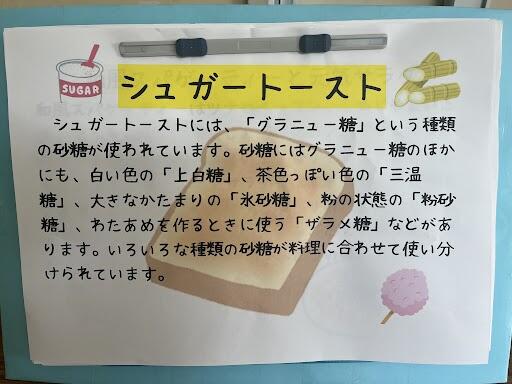 SUGAR
シュガートースト
シュガートーストには、「グラニュー糖」という種類
の砂糖が使われています。砂糖にはグラニュー糖のほか
にも、白い色の「上白糖」、茶色っぽい色の「三温
糖」、大きなかたまりの「氷砂糖」、粉の状態の「粉砂
糖」、わたあめを作るときに使う「ザラメ糖」などがあ
ります。いろいろな種類の砂糖が料理に合わせて使い分
けられています。